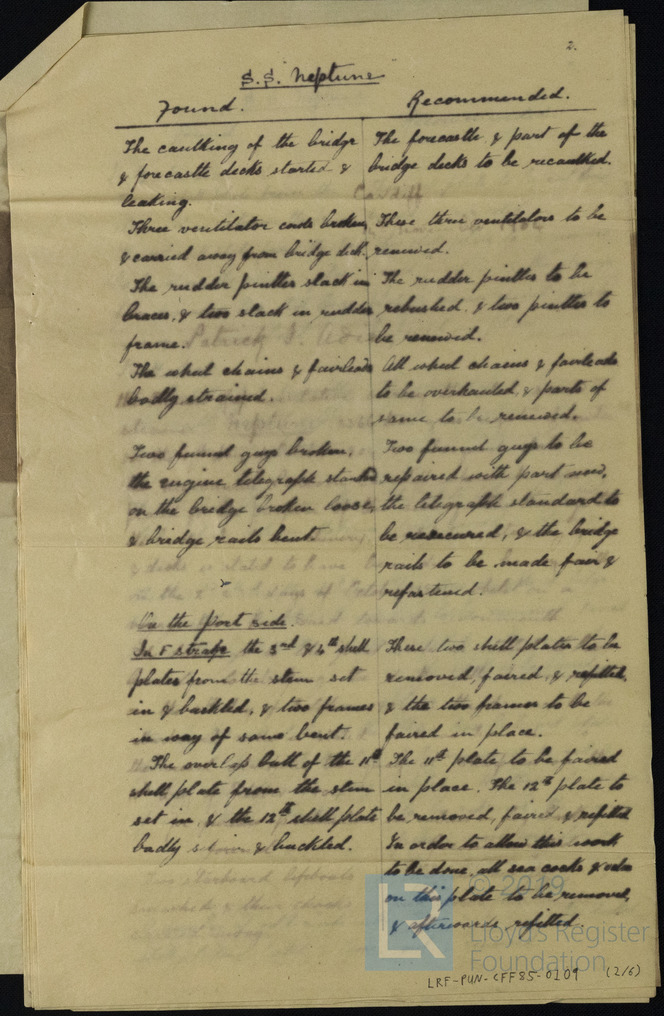 2.
S.S. Neptune
Found. Recommended.
The caulking of the bridge
& forecastle decks started &
leaking.
The forecastle & part of the
bridge decks to be recaulked.
Three ventilator cowls broken
& carried away from bridge deck.
These three ventilators to be
renewed.
The rudder pintles slack in
braces, & two slack in rudder
frame.
The rudder pintles to be
rebushed, & two pintles to
be renewed.
The wheel chains & fairleads
badly strained.
All wheel chains & fairleads
to be overhauled & parts of
same to be renewed.
Two funnel guys broken,
the engine telegraph standard
on the bridge broken loose,
& bridge rails bent.
Two funnel guys to be
repaired with part new,
the telegraph standard to
be resecured, & the bridge
rails to be made fair &
refastened.
On the Port side.
In F strake the 3rd & 4th shell
plates from the stem set
in & buckled, & two frames
in way of same bent.
These two shell plates to be
removed, faired, & refitted,
& the two frames to be
faired in place.
The overlap butt of the 11th
shell plate from the stem
set in, & the 12th shell plate
badly set in & buckled.
The 11th plate to be faired
in place. The 12th plate to
be removed, faired, & refitted
In order to allow this work
to be done, all sea cocks &
on this plate to be removed,
& afterwards refitted.
© 2019
LR
Lloyd's Register
Foundation
LRF-PUN-CFF85-0109 (2/6)